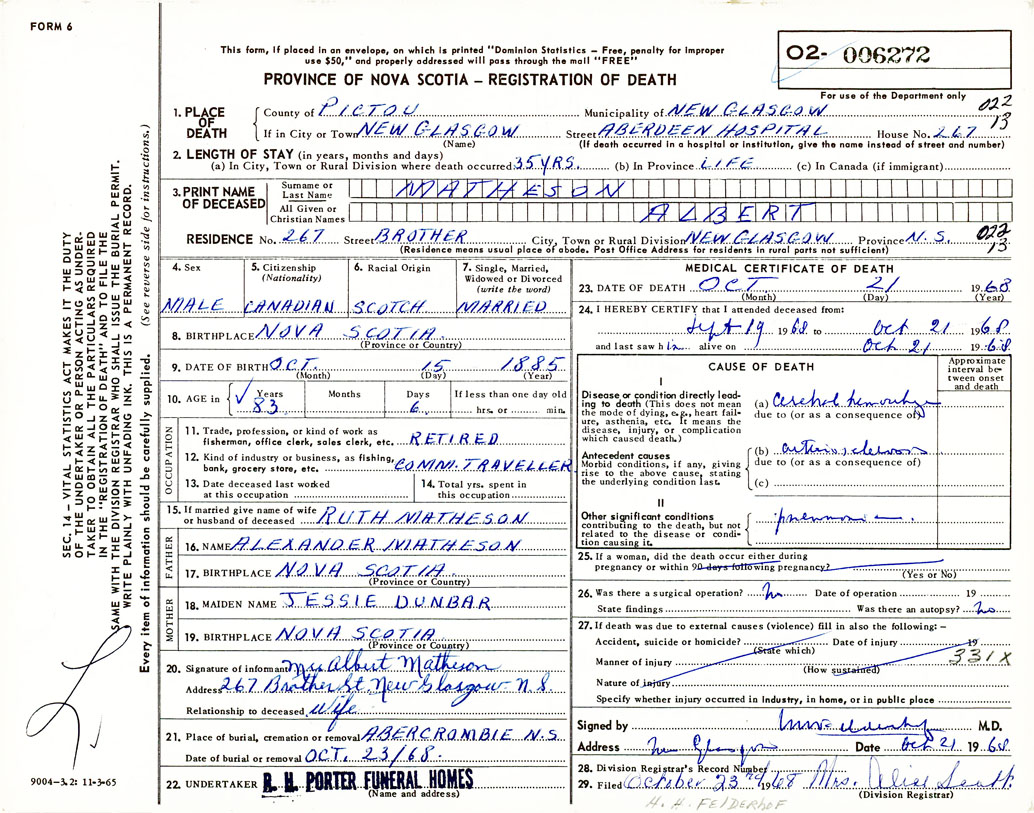 FORM 6
This form, if placed in an envelope, on which is printed "Dominion Statistics – Free, penalty for improper
use $50," and properly addressed will pass through the mail "FREE"
PROVINCE OF NOVA SCOTIA – REGISTRATION OF DEATH
02- 006272
For use of the Department only
022
13
1. PLACE OF DEATH
County of PICTOU Municipality of NEW GLASGOW
If in City or Town NEW GLASGOW Street ABERDEEN HOSPITAL House No. 267
(Name) (If death occurred in a hospital or institution, give the name instead of street and number)
2. LENGTH OF STAY (in years, months and days)
(a) In City, Town or Rural Division where death occurred 35 YRS. (b) In Province LIFE (c) In Canada (if immigrant)
3. PRINT NAME OF DECEASED
Surname or Last Name MATHESON
All Given or Christian Names ALBERT
RESIDENCE No. 267 Street BROTHER City, Town or Rural Division NEW GLASGOW Province N.S. 022
13
(Residence means usual place of abode. Post Office Address for residents in rural parts not sufficient)
4. Sex
MALE
5. Citizenship
(Nationality)
CANADIAN
6. Racial Origin
SCOTCH
7. Single, Married,
Widowed or Divorced
(write the word)
MARRIED
8. BIRTHPLACE NOVA SCOTIA
(Province or Country)
9. DATE OF BIRTH OCT. 15 1885
(Month) (Day) (Year)
10. AGE in
Years
83
Months
Days
6
If less than one day old
hrs. or min.
OCCUPATION
11. Trade, profession, or kind of work as
fisherman, office clerk, sales clerk, etc. RETIRED
12. Kind of industry or business, as fishing,
bank, grocery store, etc. COMM. TRAVELLER
13. Date deceased last worked
at this occupation
14. Total yrs. spent in
this occupation
15. If married give name of wife
or husband of deceased RUTH MATHESON
FATHER
16. NAME ALEXANDER MATHESON
17. BIRTHPLACE NOVA SCOTIA
(Province or Country)
MOTHER
18. MAIDEN NAME JESSIE DUNBAR
19. BIRTHPLACE NOVA SCOTIA
(Province or Country)
20. Signature of informant Mrs Albert Matheson
Address 267 Brother St. New Glasgow N.S.
Relationship to deceased Wife
21. Place of burial, cremation or removal ABERCROMBIE N.S.
Date of burial or removal OCT. 23/68.
22. UNDERTAKER R. H. PORTER FUNERAL HOMES
(Name and address)
MEDICAL CERTIFICATE OF DEATH
23. DATE OF DEATH OCT. 21 1968
(Month) (Day) (Year)
24. I HEREBY CERTIFY that I attended deceased from:
Sept 19 1968 to Oct 21 1968
and last saw him alive on Oct 21 1968
CAUSE OF DEATH
Approximate
interval be-
tween onset
and death
I
Disease or condition directly lead-
ing to death (This does not mean
the mode of dying, e.g., heart fail-
ure, asthenia, etc. It means the
disease, injury, or complication
which caused death.)
(a) Cerebral hemorrhage
due to (or as a consequence of)
Antecedent causes
Morbid conditions, if any, giving
rise to the above cause, stating
the underlying condition last.
(b) arteriosclerosis
due to (or as a consequence of)
(c)
II
Other significant conditions
contributing to the death, but not
related to the disease or condi-
tion causing it.
pneumonia.
25. If a woman, did the death occur either during
pregnancy or within 90 days following pregnancy?
(Yes or No)
26. Was there a surgical operation? No Date of operation 19
State findings Was there an autopsy? No
27. If death was due to external causes (violence) fill in also the following:–
Accident, suicide or homicide? Date of injury 19
(State which)
331X
Manner of injury
(How sustained)
Nature of injury
Specify whether injury occurred in industry, in home, or in public place
Signed by M.D.
Address New Glasgow Date Oct 21 1968
28. Division Registrar's Record Number
29. Filed October 23rd 1968 Mrs. Alice Scott
(Division Registrar)
H. H. FELDERHOF
SEC. 14 – VITAL STATISTICS ACT MAKES IT THE DUTY
OF THE UNDERTAKER OR PERSON ACTING AS UNDER-
TAKER TO OBTAIN ALL THE PARTICULARS REQUIRED
IN THE "REGISTRATION OF DEATH" AND TO FILE THE
SAME WITH THE DIVISION REGISTRAR WHO SHALL ISSUE THE BURIAL PERMIT.
WRITE PLAINLY WITH UNFADING INK. THIS IS A PERMANENT RECORD.
Every item of information should be carefully supplied. (See reverse side for instructions.)
9004–3.2: 11-3-65